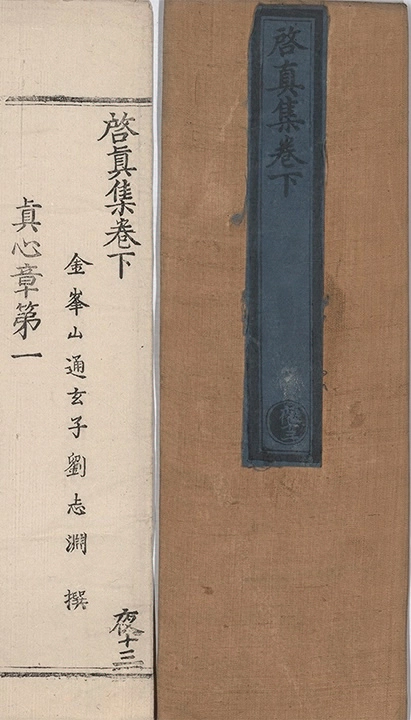 啓真集卷下
夜三
啓眞集卷下
夜十三
金峯山通玄子劉志淵 撰
眞心章第一